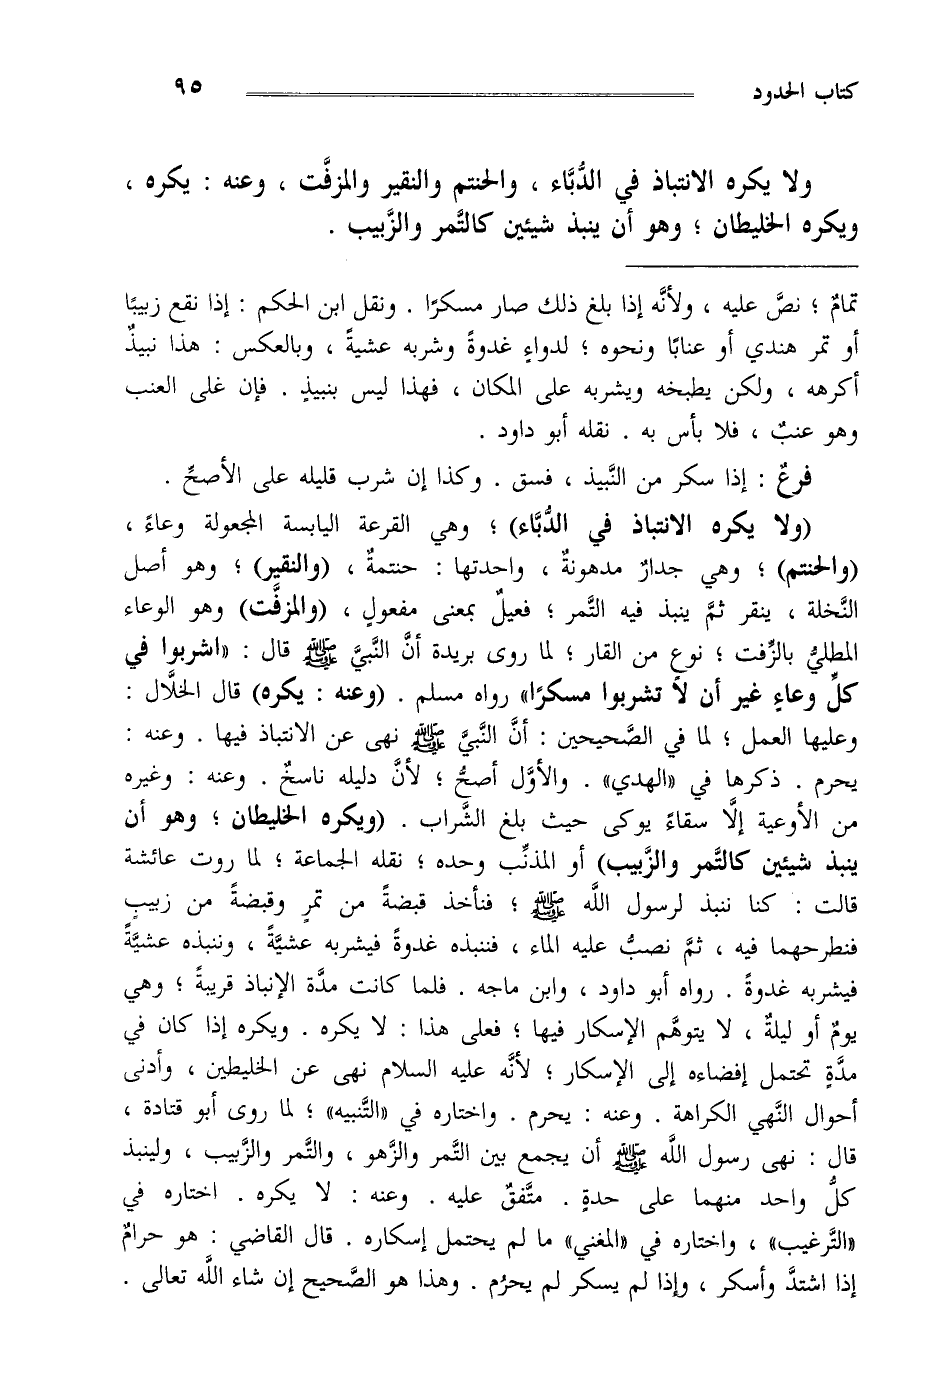 كتاب الحدود ٩٥
ولا يكره الانتباذ في الدُّبَّاء ، والحنتم والنقير والمزفَّت ، وعنه : يكره ،
ويكره الخليطان ؛ وهو أن ينبذ شيئين كالتَّمر والزَّبيب .
تمامٌ ؛ نصَّ عليه ، ولأنَّه إذا بلغ ذلك صار مسكرًا . ونقل ابن الحكم : إذا نقع زبيبًا
أو تمر هندي أو عنابًا ونحوه ؛ لدواءٍ غدوةً وشربه عشيةً ، وبالعكس : هذا نبيذٌ
أكرهه ، ولكن يطبخه ويشربه على المكان ، فهذا ليس بنبيذٍ . فإن غلى العنب
وهو عنبٌ ، فلا بأس به . نقله أبو داود .
فرعٌ : إذا سكر من النَّبيذ ، فسق . وكذا إن شرب قليله على الأصحِّ .
(ولا يكره الانتباذ في الدُّبَّاء) ؛ وهي القرعة اليابسة المجعولة وعاءً ،
(والحنتم) ؛ وهي جدارٌ مدهونةٌ ، واحدتها : حنتمةٌ ، (والنقير) ؛ وهو أصل
النَّخلة ، ينقر ثمَّ ينبذ فيه التَّمر ؛ فعيلٌ بمعنى مفعولٍ ، (والمزفَّت) وهو الوعاء
المطليُّ بالزِّفت ؛ نوعٍ من القار ؛ لما روى بريدة أنَّ النَّبيَّ ﷺ قال : «اشربوا في
كلِّ وعاءٍ غير أن لا تشربوا مسكرًا» رواه مسلم . (وعنه : يكره) قال الخلَّال :
وعليها العمل ؛ لما في الصَّحيحين : أنَّ النَّبيَّ ﷺ نهى عن الانتباذ فيها . وعنه :
يحرم . ذكرها في «الهدي» . والأوَّل أصحُّ ؛ لأنَّ دليله ناسخٌ . وعنه : وغيره
من الأوعية إلَّا سقاءً يوكى حيث بلغ الشَّراب . (ويكره الخليطان ؛ وهو أن
ينبذ شيئين كالتَّمر والزَّبيب) أو المذنِّب وحده ؛ نقله الجماعة ؛ لما روت عائشة
قالت : كنا ننبذ لرسول اللَّه ﷺ ؛ فنأخذ قبضةً من تمرٍ وقبضةً من زبيبٍ
فنطرحهما فيه ، ثمَّ نصبُّ عليه الماء ، فننبذه غدوةً فيشربه عشيَّةً ، وننبذه عشيَّةً
فيشربه غدوةً . رواه أبو داود ، وابن ماجه . فلما كانت مدَّة الإنباذ قريبةً ؛ وهي
يومٌ أو ليلةٌ ، لا يتوهَّم الإسكار فيها ؛ فعلى هذا : لا يكره . ويكره إذا كان في
مدَّةٍ تحتمل إفضاءه إلى الإسكار ؛ لأنَّه عليه السلام نهى عن الخليطين ، وأدنى
أحوال النَّهي الكراهة . وعنه : يحرم . واختاره في «التَّنبيه» ؛ لما روى أبو قتادة ،
قال : نهى رسول اللَّه ﷺ أن يجمع بين التَّمر والزَّهو ، والتَّمر والزَّبيب ، ولينبذ
كلُّ واحد منهما على حدةٍ . متَّفقٌ عليه . وعنه : لا يكره . اختاره في
«التَّرغيب» ، واختاره في «المغني» ما لم يحتمل إسكاره . قال القاضي : هو حرامٌ
إذا اشتدَّ وأسكر ، وإذا لم يسكر لم يحرُم . وهذا هو الصَّحيح إن شاء اللَّه تعالى .